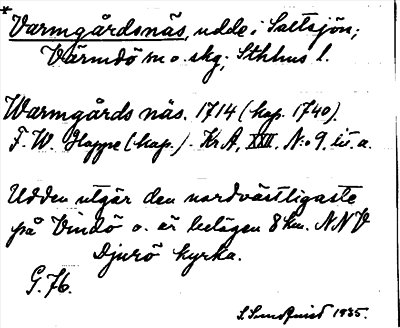 *Varmgårdsnäs, udde i Saltsjön;
Värmdö sn o. skg; Sthlms l.
Warmgårds näs. 1714 (kop. 1740).
F. W. Hoppe (kop.). Kr A, XXII, N:o 9, lit. a.
Udden utgör den nordvästligaste
på Vindö o. är belägen 8 km. NNV
Djurö kyrka.
G. 76.
S. Sundquist 1935.